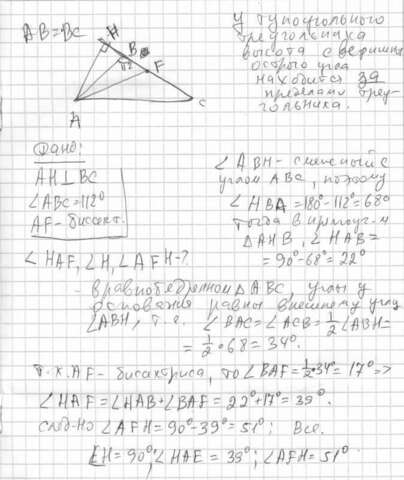 AB=BC
H
B
112
F
A
C
У тупоугольного
треугольника
высота с вершины
острого угла
находится за
пределами треу-
гольника.
Дано:
AH⊥BC
∠ABC=112°
AF-биссект.
∠HAF, ∠H, ∠AFH-?
∠ABH - смежный с
углом ABC, поэтому
∠HBA=180°-112°=68°
Тогда в прямоуг-м
△AHB, ∠HAB=
=90°-68°=22°
- в равнобедренном △ABC, углы у
основания равны внешнему углу
∠ABH, т.е. ∠BAC=∠ACB=1/2∠ABH=
=1/2·68=34°.
т.к. AF- биссектриса, то ∠BAF=1/2·34°=17°=>
∠HAF=∠HAB+∠BAF=22°+17°=39°.
след-но ∠AFH=90°-39°=51°; Все.
∠H=90°; ∠HAF=39°; ∠AFH=51°